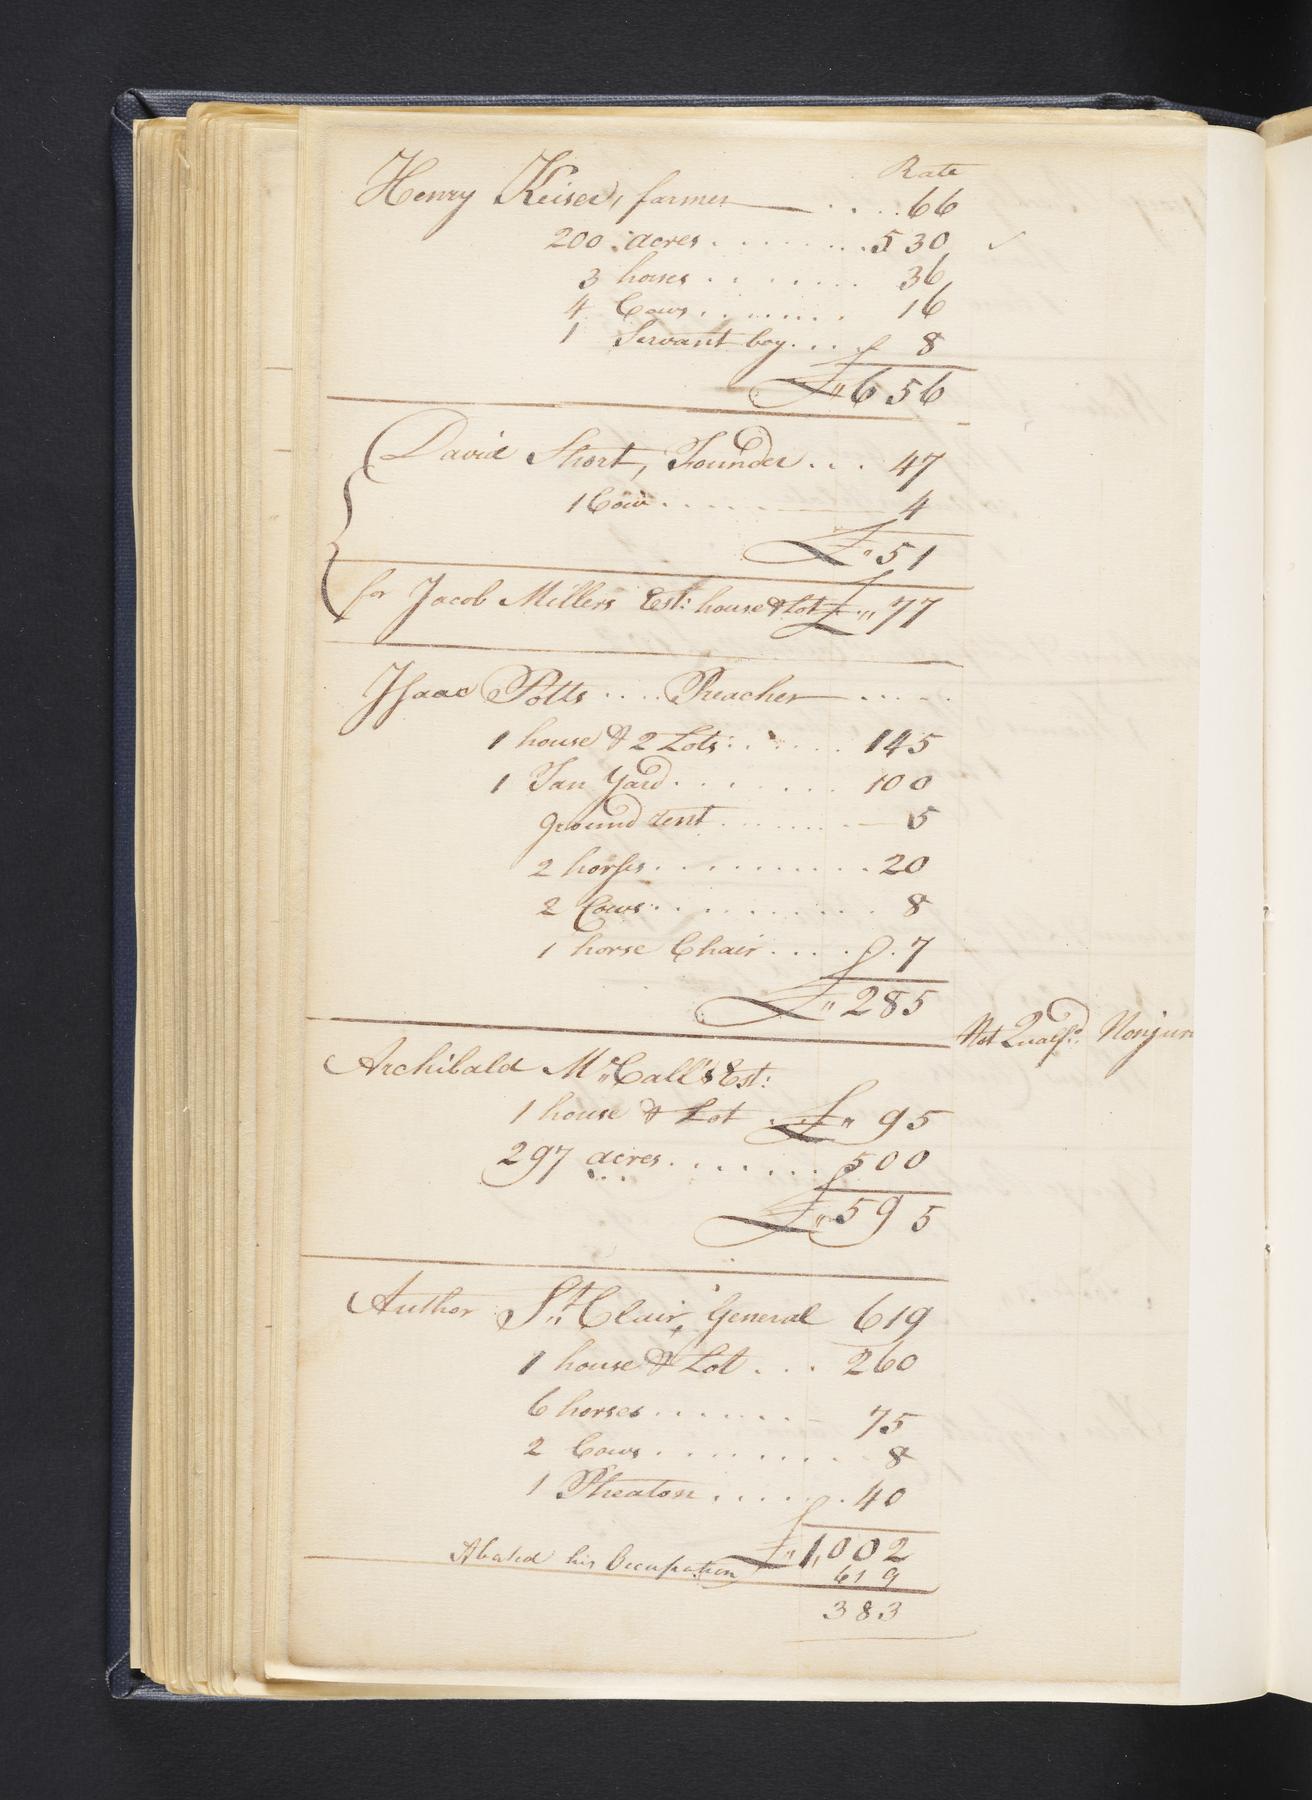 Rate
Henry Keiser, farmer .... 66
200 acres ........ 530 ✓
3 horses ........ 36
4 Cows ........ 16
1 Servant boy ... 8
£ 656
David Short, Founder ... 47
1 Cow ..... 4
£ 51
for Jacob Millers Est: house & Lot £ 77
Isaac Potts .... Preacher .....
1 house & 2 Lots ...... 145
1 Tan Yard ........ 100
ground rent ....... 5
2 horses .......... 20
2 Cows .......... 8
1 horse Chair ..... 7
£ 285
Not Qualfd. Nonjur
Archibald McCall's Est:
1 house & Lot .. £ 95
297 acres ........ 500
£ 595
Author St. Clair, General 619
1 house & Lot ... 260
6 horses ....... 75
2 Cows ......... 8
1 Pheaton ...... 40
£ 1,002
Abated his Occupation 619
383